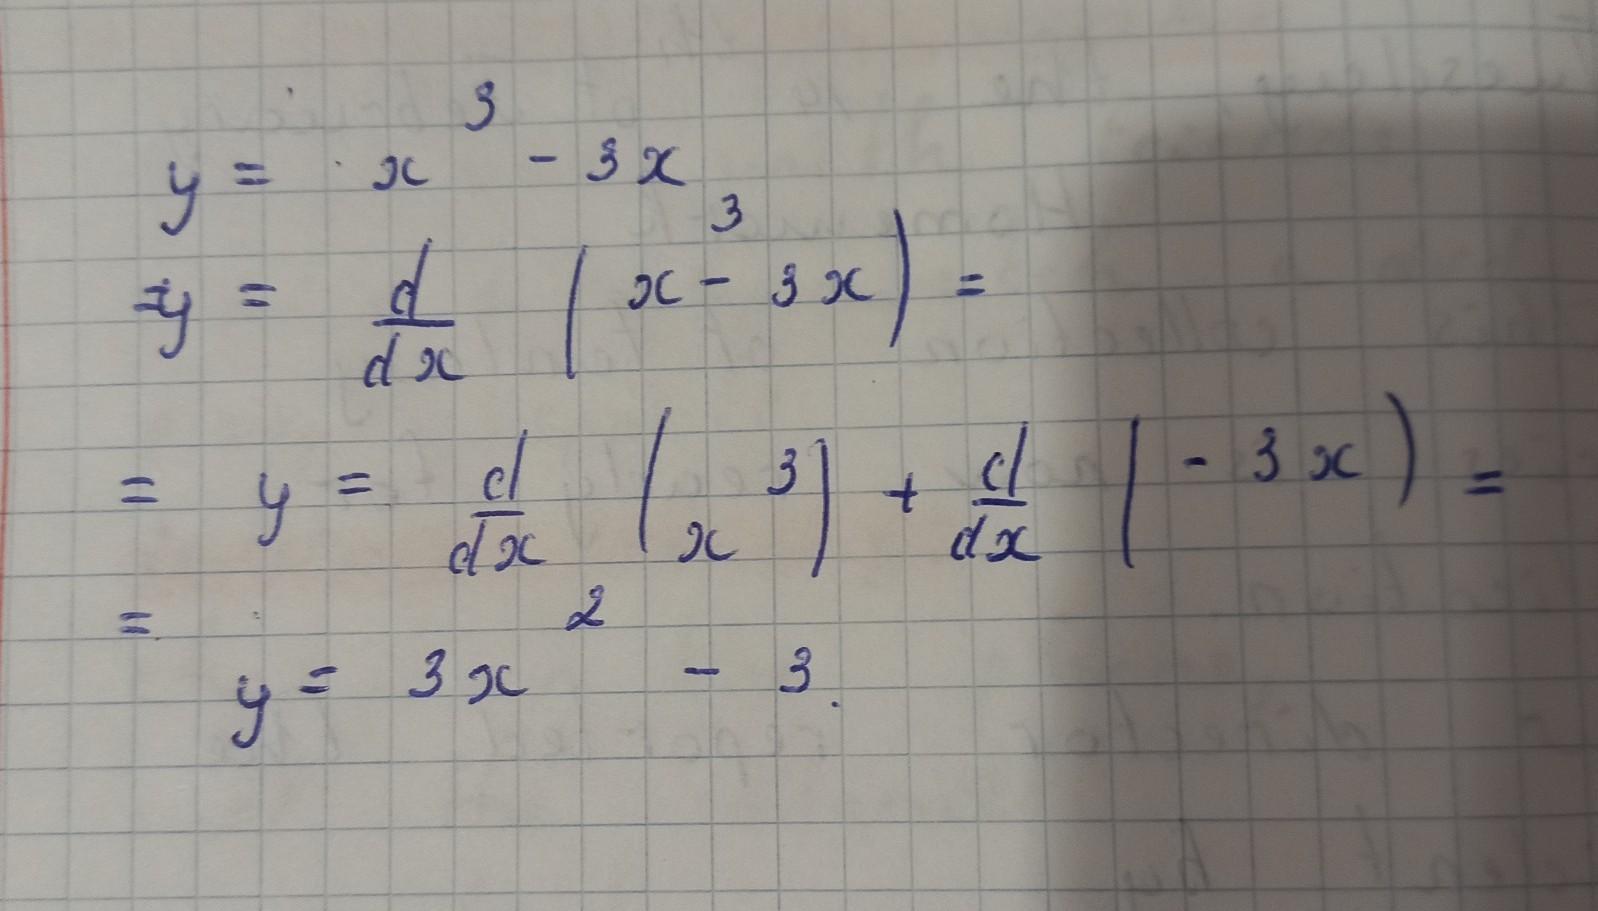 y = x³ - 3x
=y = d/dx (x³ - 3x) =
= y = d/dx (x³) + d/dx (-3x) =
=
y = 3x² - 3.